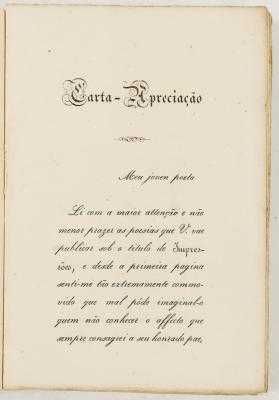 Carta-Apreciação
Meu joven poeta
Li com a maior attenção e não
menor prazer as poesias que V. vae
publicar sob o titulo de Impres-
sões, e desde a primeira pagina
senti-me tão extremamente commo-
vido que mal póde imaginal-o
quem não conhecer o affecto que
sempre consagrei a seu honrado pae,